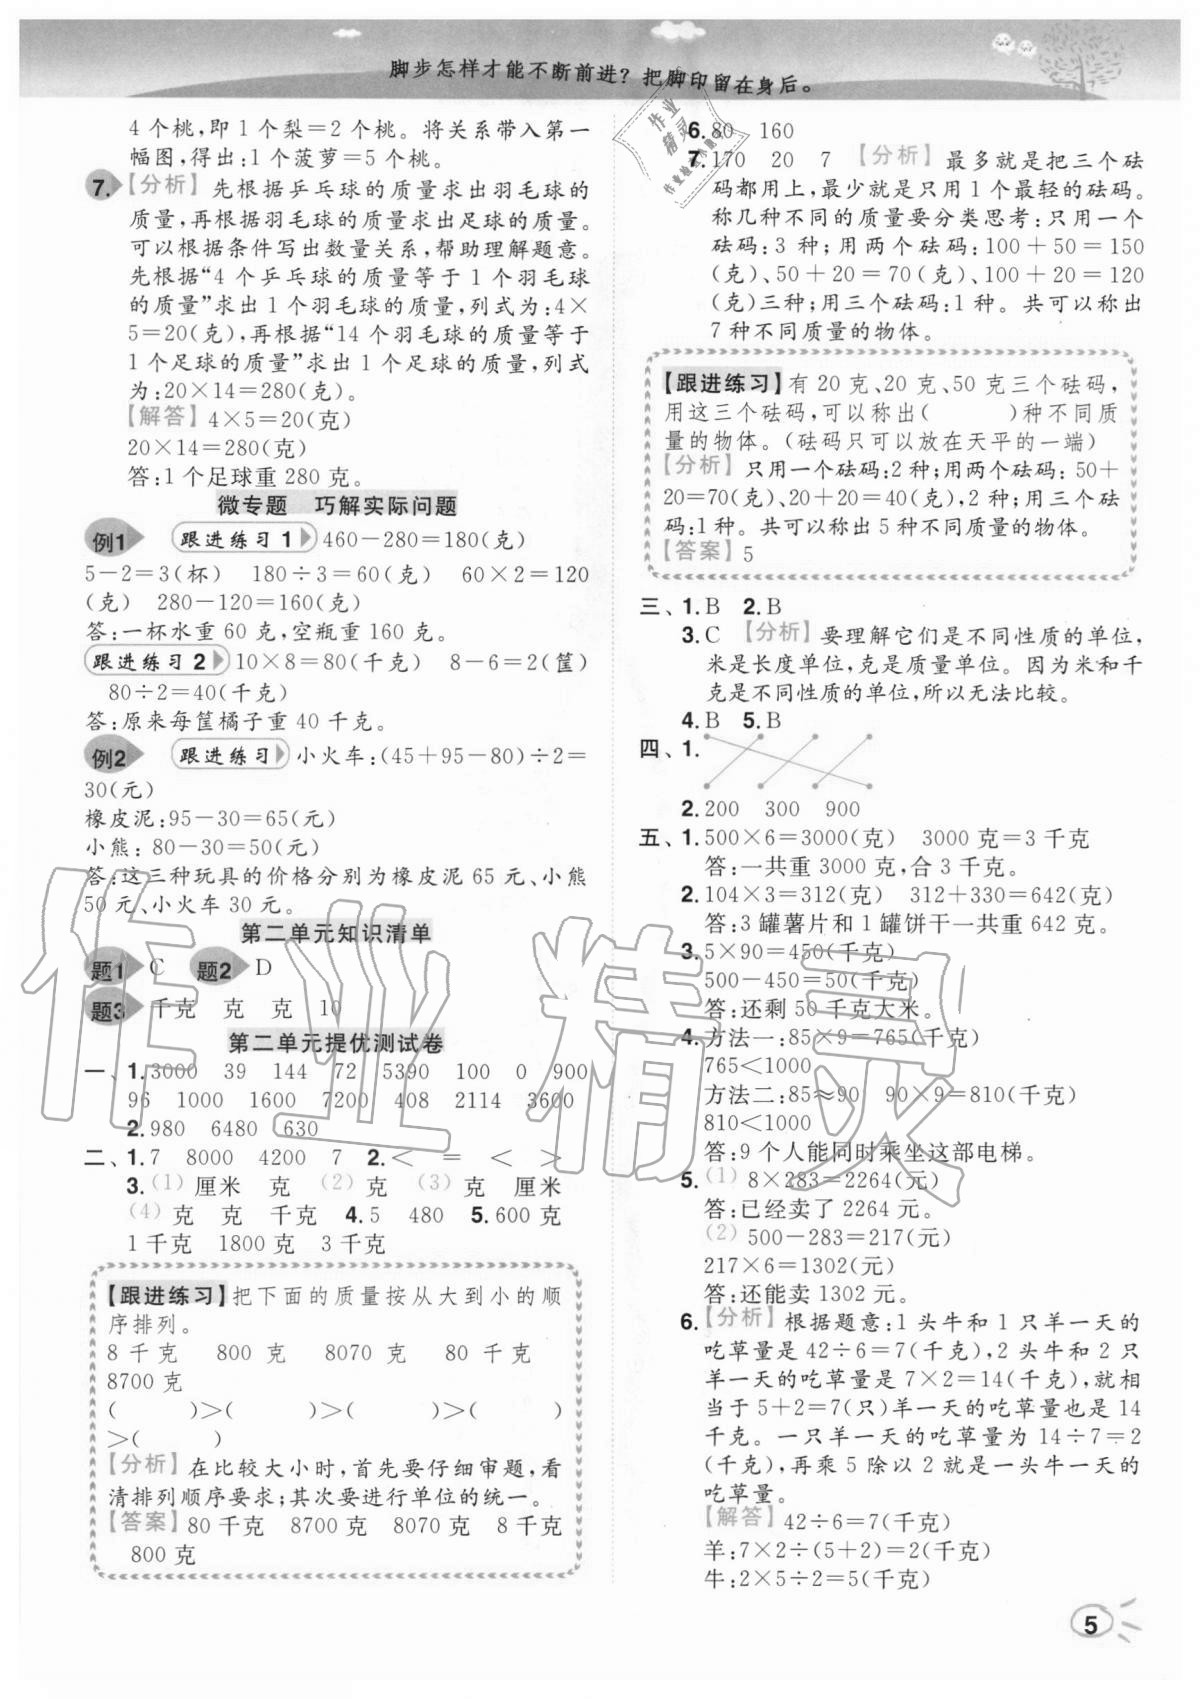 脚步怎样才能不断前进？把脚印留在身后。
4 个桃,即 1 个梨=2 个桃。将关系带入第一
幅图,得出:1 个菠萝=5 个桃。
7.【分析】先根据乒乓球的质量求出羽毛球的
质量,再根据羽毛球的质量求出足球的质量。
可以根据条件写出数量关系,帮助理解题意。
先根据“4 个乒乓球的质量等于 1 个羽毛球
的质量”求出 1 个羽毛球的质量,列式为:4×
5=20(克),再根据“14 个羽毛球的质量等于
1 个足球的质量”求出 1 个足球的质量,列式
为:20×14=280(克)。
【解答】4×5=20(克)
20×14=280(克)
答:1 个足球重 280 克。
微专题　巧解实际问题
例1　跟进练习 1　460－280=180(克)
5－2=3(杯)　180÷3=60(克)　60×2=120
(克)　280－120=160(克)
答:一杯水重 60 克,空瓶重 160 克。
跟进练习 2　10×8=80(千克)　8－6=2(筐)
80÷2=40(千克)
答:原来每筐橘子重 40 千克。
例2　跟进练习　小火车:(45+95－80)÷2=
30(元)
橡皮泥:95－30=65(元)
小熊:80－30=50(元)
答:这三种玩具的价格分别为橡皮泥 65 元、小熊
50 元、小火车 30 元。
第二单元知识清单
题1　C　题2　D
题3　千克　克　克　10
第二单元提优测试卷
一、1.3000　39　144　72　5390　100　0　900
96　1000　1600　7200　408　2114　3600
2.980　6480　630
二、1.7　8000　4200　7　2.＜　＝　＜　＞
3.(1)厘米　克　(2)克　(3)克　厘米
(4)克　克　千克　4.5　480　5.600 克
1 千克　1800 克　3 千克
【跟进练习】把下面的质量按从大到小的顺
序排列。
8 千克　800 克　8070 克　80 千克
8700 克
(　　)＞(　　)＞(　　)＞(　　)
＞(　　)
【分析】在比较大小时,首先要仔细审题,看
清排列顺序要求;其次要进行单位的统一。
【答案】80 千克　8700 克　8070 克　8 千克
800 克
6.80　160
7.170　20　7　【分析】最多就是把三个砝
码都用上,最少就是只用 1 个最轻的砝码。
称几种不同的质量要分类思考:只用一个
砝码:3 种;用两个砝码:100＋50＝150
(克)、50＋20＝70(克)、100＋20＝120
(克)三种;用三个砝码:1 种。共可以称出
7 种不同质量的物体。
【跟进练习】有 20 克、20 克、50 克三个砝码,
用这三个砝码,可以称出(　　)种不同质
量的物体。(砝码只可以放在天平的一端)
【分析】只用一个砝码:2 种;用两个砝码:50＋
20=70(克)、20＋20=40(克),2 种;用三个砝
码:1 种。共可以称出 5 种不同质量的物体。
【答案】5
三、1.B　2.B
3.C　【分析】要理解它们是不同性质的单位,
米是长度单位,克是质量单位。因为米和千
克是不同性质的单位,所以无法比较。
4.B　5.B
四、1.
2.200　300　900
五、1.500×6=3000(克)　3000 克=3 千克
答:一共重 3000 克,合 3 千克。
2.104×3=312(克)　312+330=642(克)
答:3 罐薯片和 1 罐饼干一共重 642 克。
3.5×90=450(千克)
500－450=50(千克)
答:还剩 50 千克大米。
4.方法一:85×9=765(千克)
765＜1000
方法二:85≈90　90×9=810(千克)
810＜1000
答:9 个人能同时乘坐这部电梯。
5.(1) 8×283=2264(元)
答:已经卖了 2264 元。
(2) 500－283=217(元)
217×6=1302(元)
答:还能卖 1302 元。
6.【分析】根据题意:1 头牛和 1 只羊一天的
吃草量是 42÷6=7(千克),2 头牛和 2 只
羊一天的吃草量是 7×2=14(千克),就相
当于 5+2=7(只)羊一天的吃草量也是 14
千克。一只羊一天的吃草量为 14÷7=2
(千克),再乘 5 除以 2 就是一头牛一天的
吃草量。
【解答】42÷6=7(千克)
羊:7×2÷(5+2)=2(千克)
牛:2×5÷2=5(千克)
5
作业精灵
作业
精灵